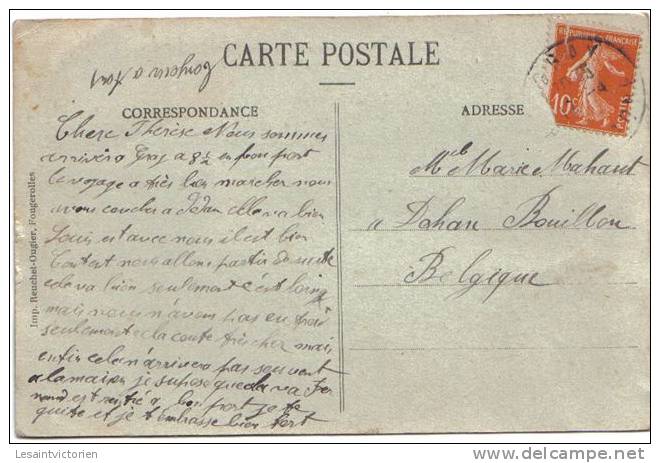 CARTE POSTALE
REPUBLIQUE FRANÇAISE
10c
POSTES
CORRESPONDANCE
ADRESSE
Chere Thérèse Nous sommes
arrivéro Gray a 8 ½ en bon port
le voyage a très bien marcher nous
avons coucher a cela va bien
Louis est avec nous il est bien
Contant nous allons partir de suite
cela va bien seulement c'est loing
mais nous n'avons pas en froi
seulement cela coute très cher mais
enfin cela n'arrivera pas souvent
a la maison je supose que cela va
nand est rentré a bon port je te
quite et je t'embrasse bien fort
Melle Marie Mahaut
a Dohan Bouillon
Belgique
Imp. Reuchet-Ougier, Fougerolles
Lesaintvictorien
delcampe.net